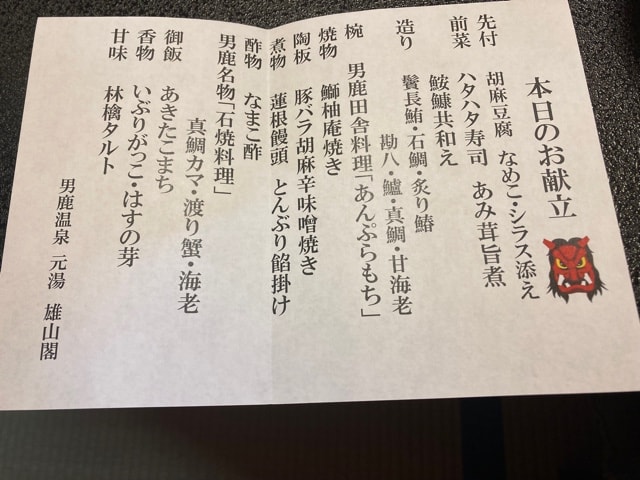 本日のお献立
先付 胡麻豆腐 なめこ・シラス添え
前菜 ハタハタ寿司 あみ茸旨煮
鮟鱇共和え
造り 鬢長鮪・石鯛・炙り鰆
勘八・鱸・真鯛・甘海老
椀 男鹿田舎料理「あんぷらもち」
焼物 鰤柚庵焼き
陶板 豚バラ胡麻辛味噌焼き
煮物 蓮根饅頭 とんぶり餡掛け
酢物 なまこ酢
男鹿名物「石焼料理」
真鯛カマ・渡り蟹・海老
御飯 あきたこまち
香物 いぶりがっこ・はすの芽
甘味 林檎タルト
男鹿温泉 元湯 雄山閣